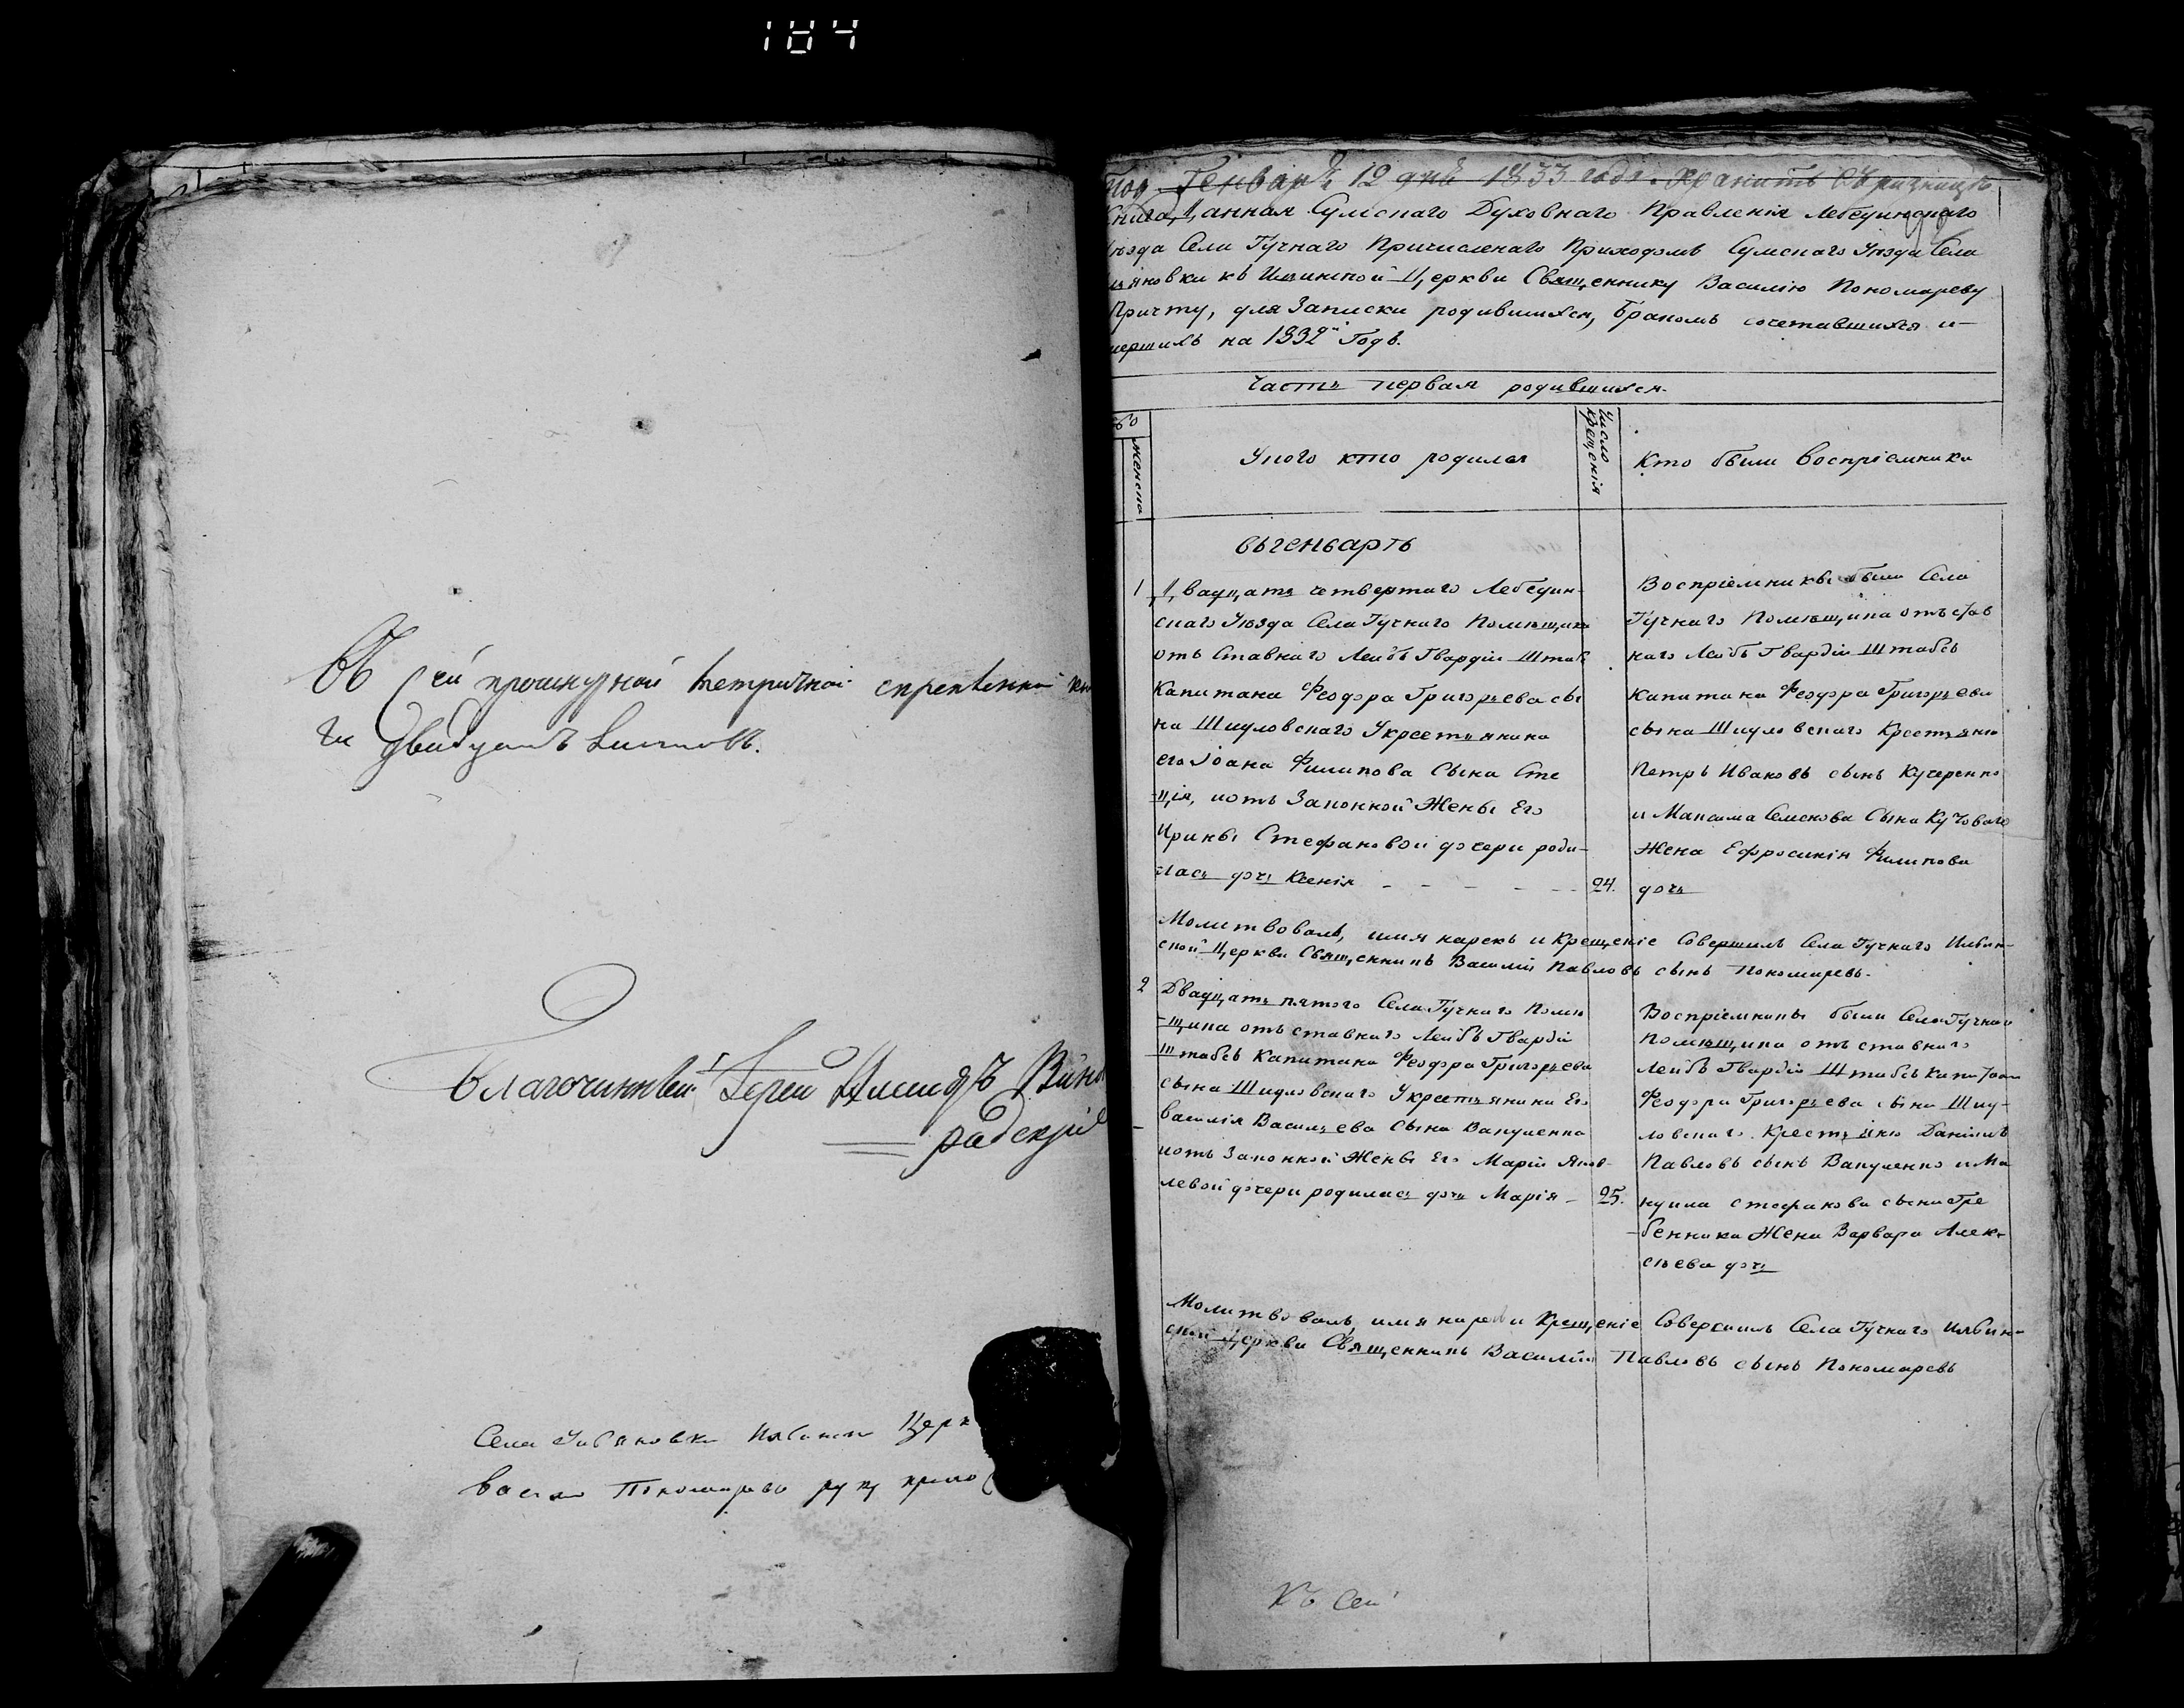 184
Въ сей прошнурной метричной скрепленной
ги двадцать листовъ.
Благочинный Іерей
радскій
Села Ильинской Церк
Пономарев руку прило
под. Генваря 12 дня 1833 года. хранить въ ризницѣ
Книга, Данная Сумскаго Духовнаго Правленія Лебединскаго
уѣзда Села Гучнаго Причисленаго Приходомъ Сумскаго Уѣзда Села
яновки къ Ильинской Церкви Священнику Василію Пономареву
Причту, для Записки родившихся, бракомъ сочетавшихся и
мершихъ на 1832й Годъ.
Часть первая родившихся.
женска
Укого кто родился
Число крещенія
Кто были воспріемники
въгенварть
1 Двадцать четвертаго Лебедин-
скаго Уѣзда Села Гучнаго Помѣщика
отъ Ставнаго Лейбъ Гвардіи Штаб
Капитана Феодора Григорьева сы
на Шидловскаго Укрестьянина
его Іоана Филипова Сына Сте
ція, иотъ Законной Жены Его
Ирины Стефановой дочери роди-
лась дочь Ксенія 24.
Воспріемникы были Села
Гучнаго Помѣщика отъстав
наго Лейбъ Гвардіи Штабсъ
капитана Феодора Григорьева
сына Шидловскаго Крестьяне
Петръ Ивановъ сынъ Кучеренко
и Максима Семенова Сына Кучоваго
Жена Ефросинія Филипова
дочь
Молитвовалъ, имя нарекъ и Крещеніе Совершилъ Села Гучнаго Ильин-
ской Церкви Священникъ Василій Павловъ сынъ Пономаревъ.
2 Двадцать пятого Села Гучнаго Помѣ
щика отъ ставнаго Лейбъ Гвардіи
Штабсъ Капитана Феодора Григорьева
сына Шидловскаго Укрестьянина Его
василія Васильева Сына Вакуленка
иотъ Законной Жены Его Маріи Яков-
левой дочери родилась дочь Марія 25.
Воспріемникы были Села Гучнаго
помѣщика отъ ставнаго
Лейбъ Гвардіи Штабсъ капитана
Феодора Григорьева сына Шид-
ловскаго Крестьяне Даніилъ
Павловъ сынъ Вакуленко и Ма
нуила стефанова сына Гре
бенника Жена Варвара Алек-
сѣева дочь
Молитвовалъ, имя нарекъ и Крещеніе Совершилъ Села Гучнаго Ильин-
ской Церкви Священникъ Василій Павловъ сынъ Пономаревъ
Къ Сей